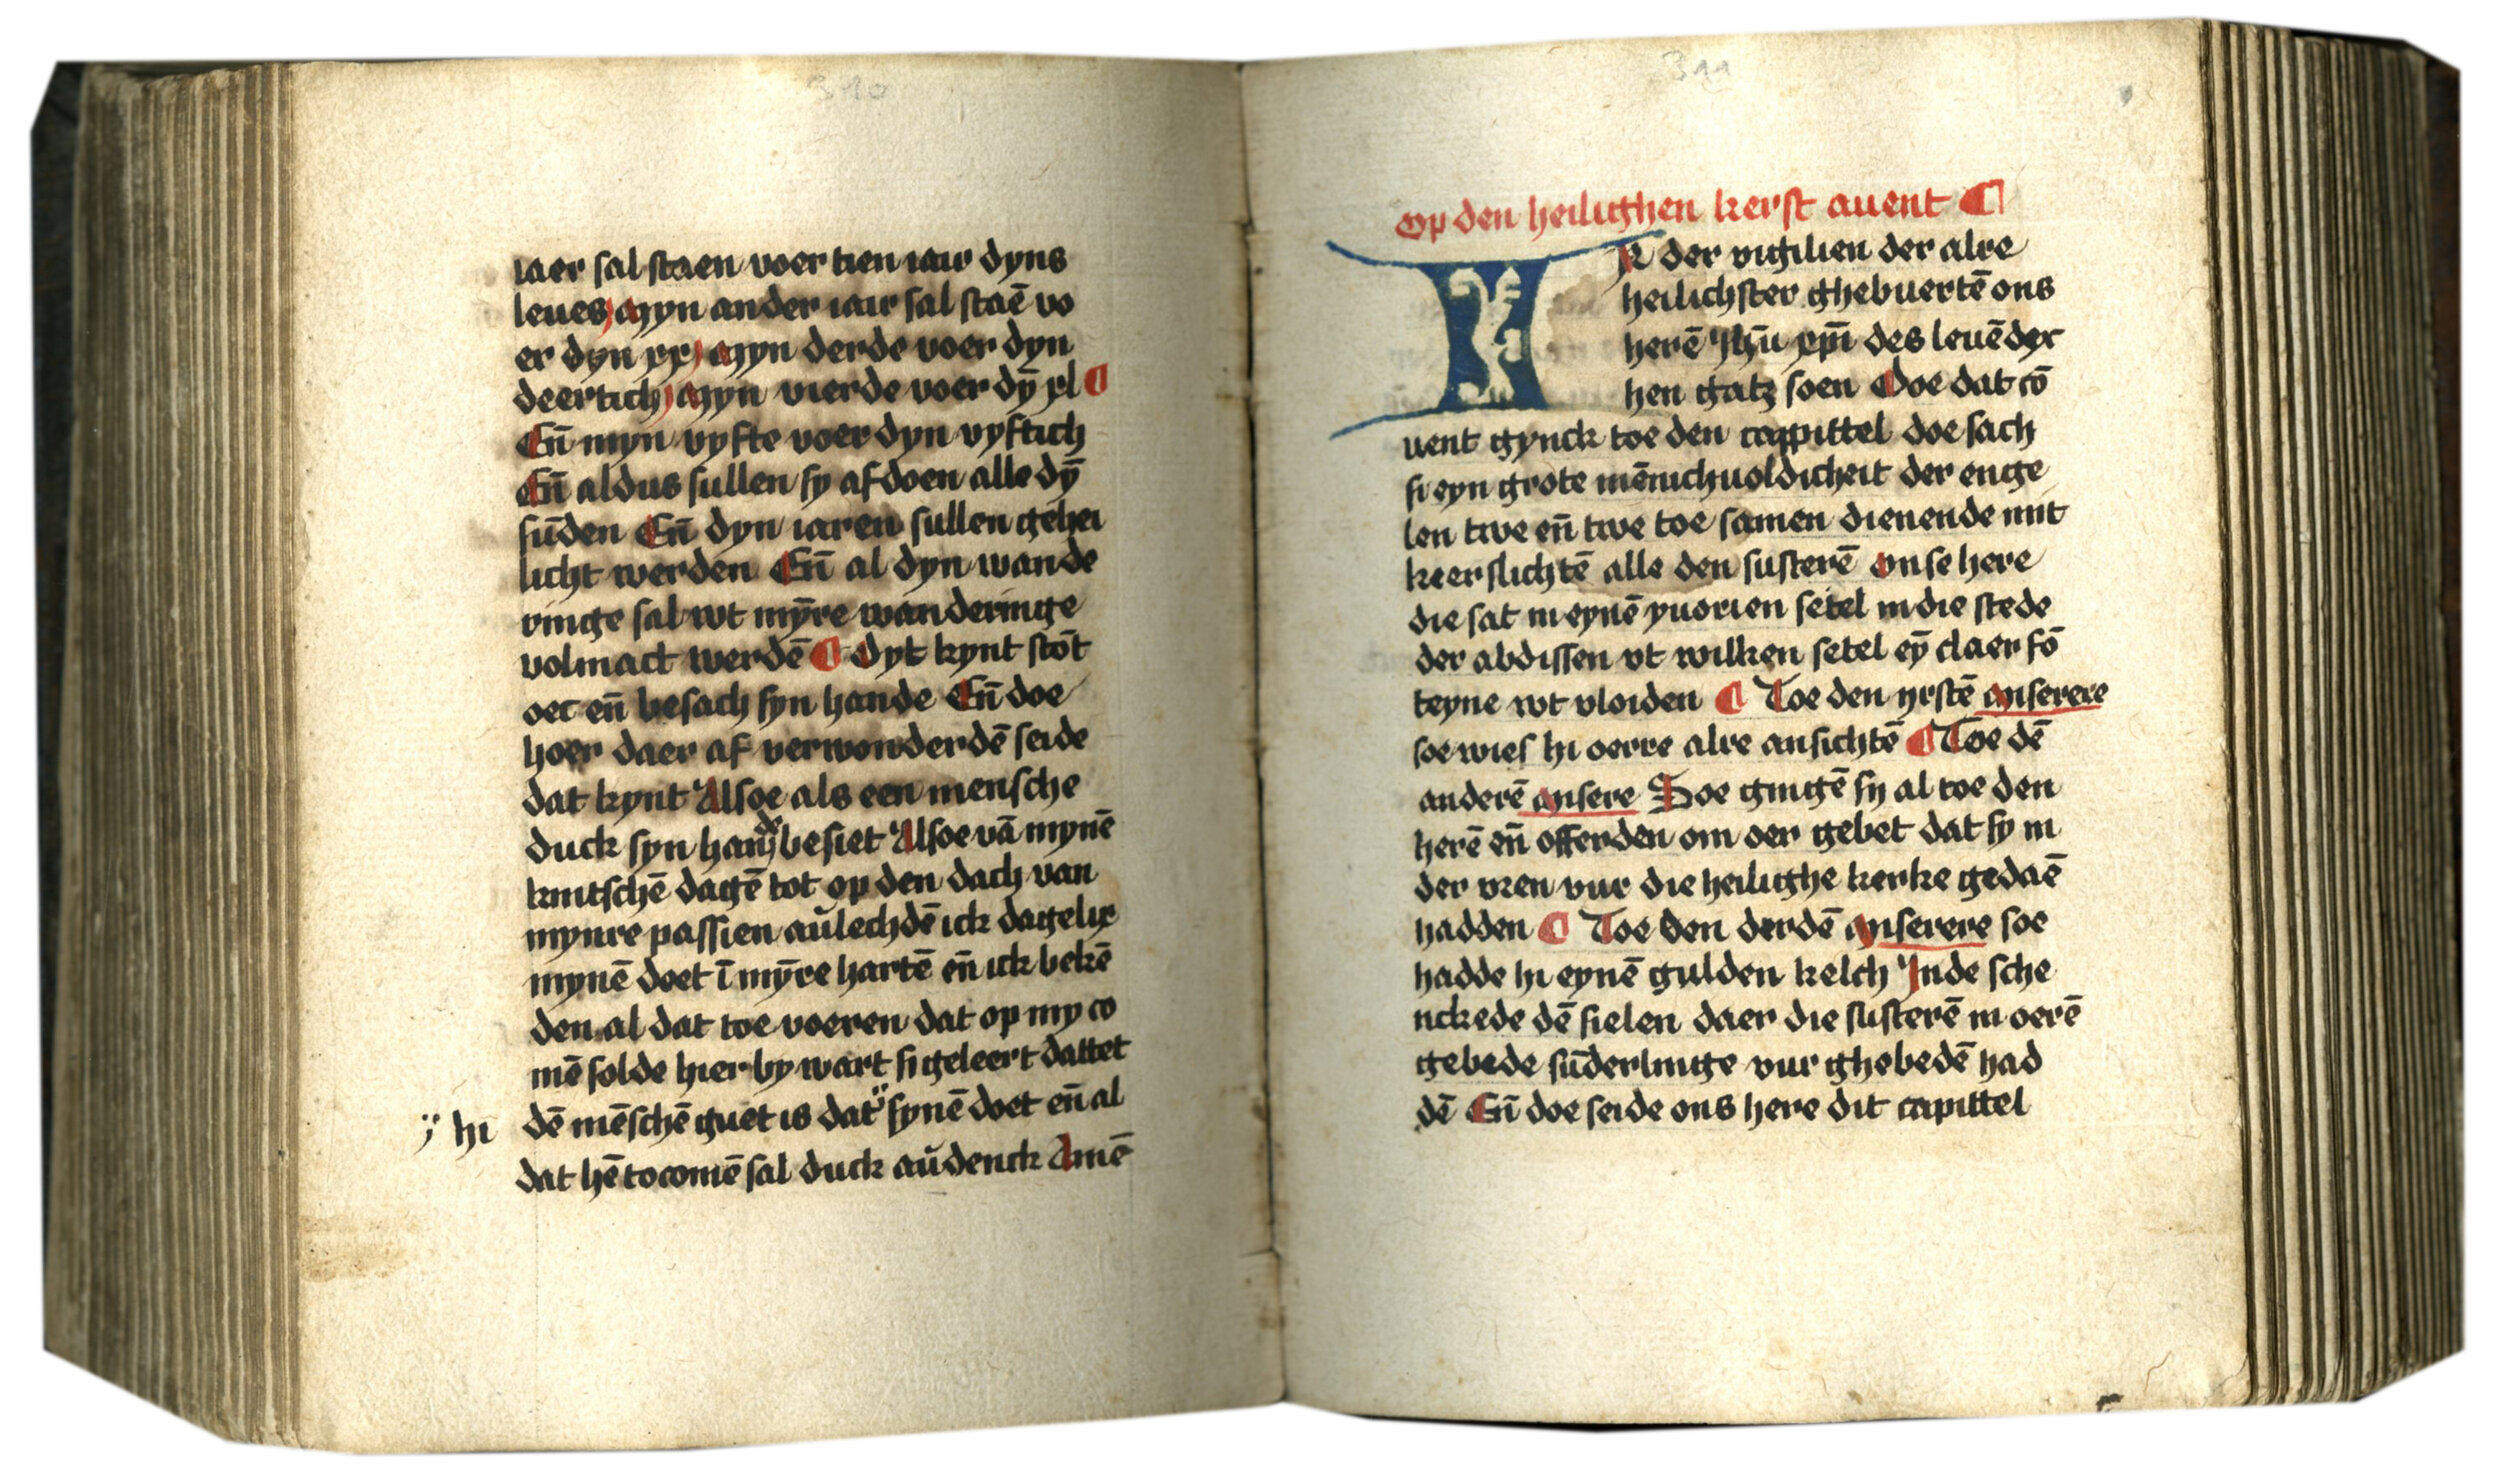 310
iaer sal staen voer tien iair dyns
leues myn ander iair sal staē vo
er dyn xx myn derde voer dyn
deertich myn vierde voer dȳ xl
En̄ myn vyfte voer dyn vyftich
En̄ aldus sullen sy af doen alle dȳ
sūden En̄ dyn iaren sullen gehei
licht werden En̄ al dyn wande
ringe sal wt mȳre wanderinge
volmact werdē dyt kynt stōt
oec en̄ besach syn hande En̄ doe
hoer daer af verwonderdē seide
dat kynt Alsoe als een mensche
duck syn hande besiet Alsoe vā mynē
kintschē dagē tot op den dach van
mynre passien auͮlechdē ick dagelix
mynē doet ī mȳre hartē en̄ ick bekē
den al dat toe voeren dat op my co
mē solde hier by wart si geleert dattet
ÿ hi dē mēschē guet is dat ÿ synē doet en̄ al
dat hē tocomē sal duck auͮdenck Amē
311
Op den heilighen kerst auent
IN der vigilien der alre
heilichster ghebuertē ons
herē Jhū xp̄i des leuēdex
hen gatz soen Doe dat cō
uent gynck toe den cappittel doe sach
si eyn grote mēnichuoldicheit der enge
len twe en̄ twe toe samen dienende mit
keerslichtē alle den susterē onse here
die sat in eynē yuorien setel in die stede
der abdissen vt wilken setel eȳ claer fō
teyne wt vloiden Toe den yrstē miserere
soe wies hi oerre alre ansichtē Toe dē
anderē misere Soe gingē sy al toe den
herē en̄ offerden om oer gebet dat sy in
der vren vur die heilighe kerke gedaē
hadden Toe den derdē miserere soe
hadde hi eynē gulden kelch Inde sche
nckede dē sielen daer die susterē in oerē
gebede sūderlinge vur ghebedē had
dē En̄ doe seide ons here dit capittel